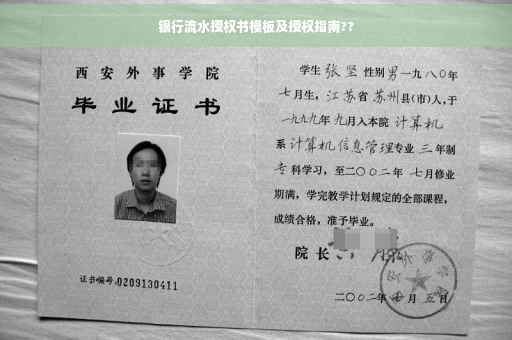 银行流水授权书模板及授权指南??
西安外事学院
毕业证书
证书编号:0209130411
学生张坚性别男一九八〇年
七月生,江苏省苏州县(市)人,于
一九九九年九月入本院计算机
系计算机信息管理专业三年制
专科学习,至二〇〇二年七月修业
期满,学完教学计划规定的全部课程,
成绩合格,准予毕业。
院长
二〇〇二年 月五日